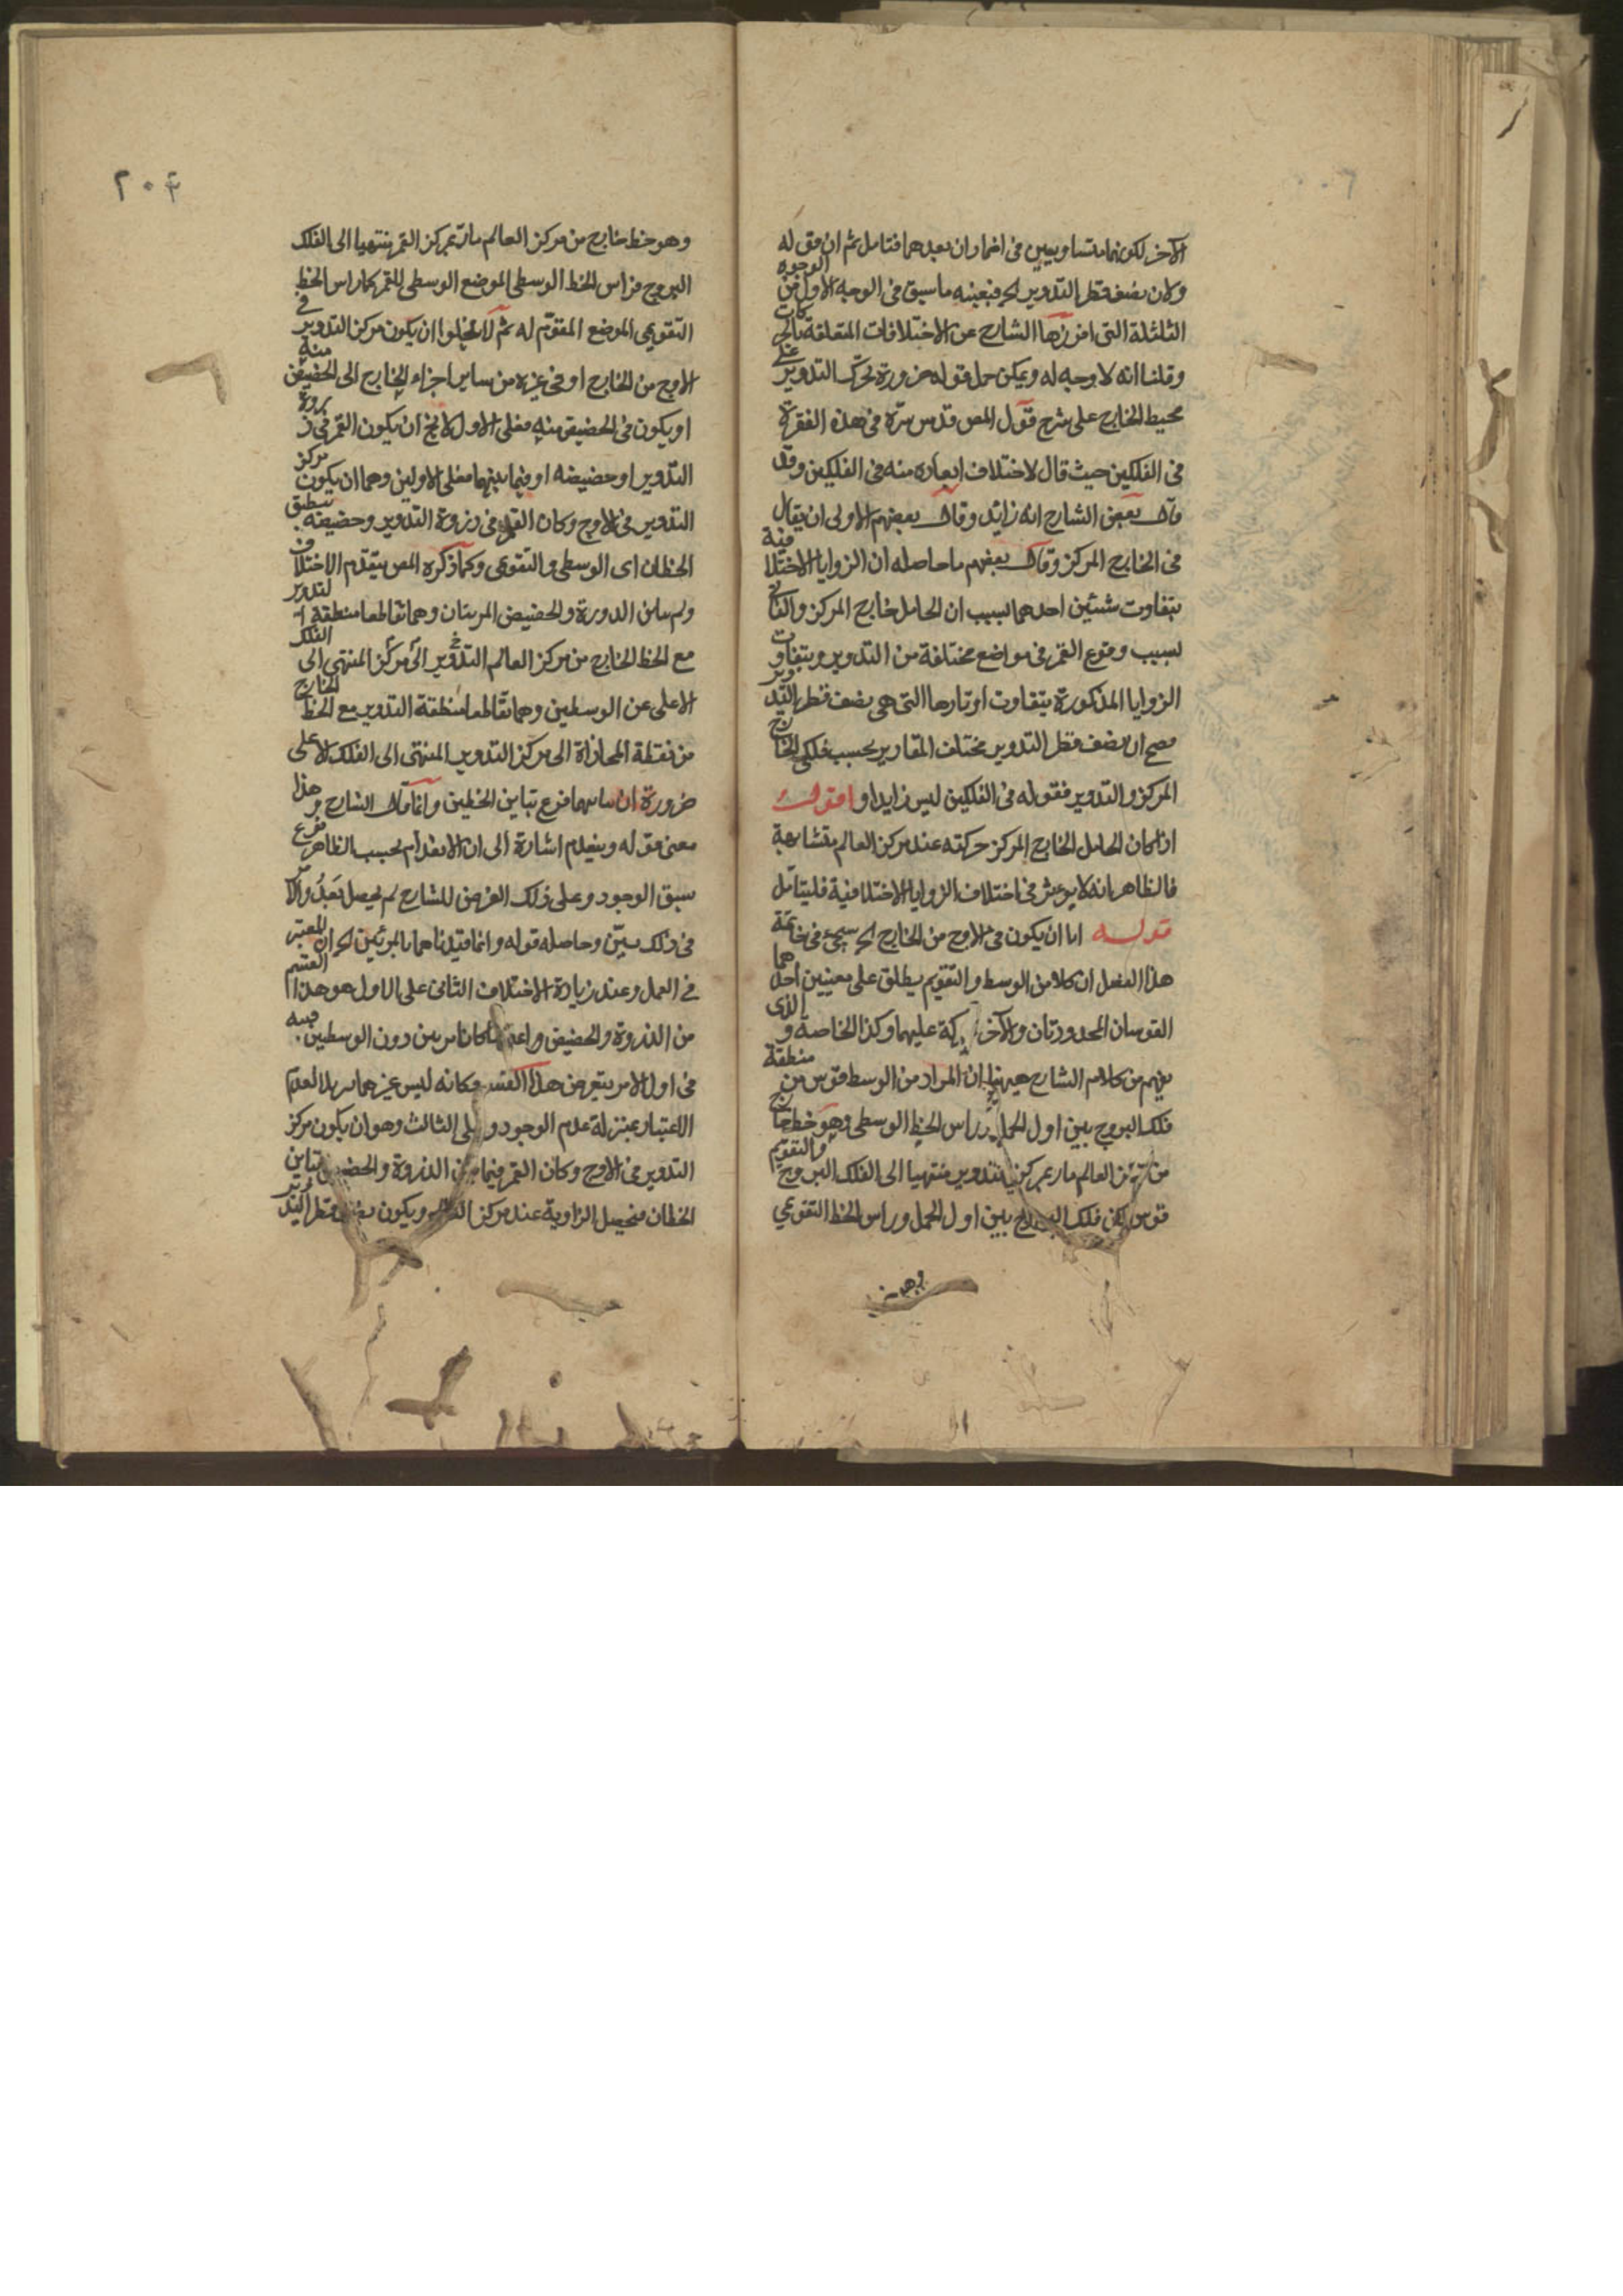 الآخر لكونهما متساويين في انهما ران بعدهما فتامل ثم ان قوله
ولان نصف قطر التدوير الخ فبعينه ما سبق في الوجه الاول من الوجوه
الثلثة التي افرزها الشارح عن الاختلافات المتعلقة بالحركات
وقلنا انه لا وجه له ويمكن حمل قوله ضرورة تحرك التدوير على
محيط الخارج على شرح قول المص قدس سره في هذه الفقرة
في الفلكين حيث قال لاختلاف ابعاده منه في الفلكين وقد
قال بعض الشارح انه زائد وقال بعضهم الاولى ان يقال
في الخارج المركز وقال بعضهم ما حاصله ان الزوايا الاختلافية
يتفاوت شيئين احدهما بسبب ان الحامل خارج المركز والثاني
بسبب وقوع القمر في مواضع مختلفة من التدوير ويتفاوت
الزوايا المذكورة يتفاوت اوتارها التي هي نصف قطر التدوير
فصح ان نصف قطر التدوير مختلف المقادير بحسب فلكي الخارج
المركز والتدوير فقوله في الفلكين ليس زايدا و اقول
اذا كان الحامل الخارج المركز حركته عند مركز العالم متشابهة
فالظاهر انه لا يوثر في اختلاف الزوايا الاختلافية فليتامل
قوله اما ان يكون في الاوج من الخارج الخ سيجئ في خاتمة
هذا الفصل ان كلا من الوسط والتقويم يطلق على معنيين احدهما
القوسان المحدودتان والآخر كة عليهما وكذا الخاصة و الذي
يفهم من كلام الشارح ههنا ان المراد من الوسط قوس من منطقة
فلك البروج بين اول الحمل وراس الخط الوسطي وهو خط خارج
من مركز العالم مار بمركز التدوير منتهيا الى الفلك البروج والتقويم
قوس من فلك البروج بين اول الحمل وراس الخط التقويمي
وهو خط
٢٠٣
وهو خط خارج من مركز العالم مار بمركز القمر منتهيا الى الفلك
البروج فراس الخط الوسطي الموضع الوسطي للقمر كما راس الخط
التقويمي الموضع المقوم له ثم لا يخلوا ان يكون مركز التدوير في
الاوج من الخارج او في غيره من ساير اجزاء الخارج الى الحضيض منه
او يكون في الحضيض منه فعلى الاول لا يخ ان يكون القمر في ذروة
التدوير او حضيضه او فيما بينهما فعلى الاولين وهما ان يكون مركز
التدوير في الاوج وكان القمر في ذروة التدوير وحضيضه ينطبق
الخطان اى الوسطي والتقويمي وكما ذكره المص ينقدم الاختلاف
ولم الدورة والحضيض المرئيتان وهما تقاطعا منطقة التدوير
مع الخط الخارج من مركز العالم الى مركز التدوير المنتهي الى الفلك
الاعلى عن الوسطين وهما تقاطعا منطقة التدوير مع الخط الخارج
من نقطة المحاذاة الى مركز التدوير المنتهي الى الفلك الاعلى
ضرورة ان فرع تباين الخطين وانما قال الشارح وهذا
معنى قوله وينعدم اشارة الى ان الانعدام بحسب الظاهر فرع
سبق الوجود وعلى ذلك الفرض للشارح لم يحصل بعد والا
في ذلك بين وحاصله قوله وانما قيدناهما بالمرئيين الخ ان المعتبر
في العمل وعند زيادة الاختلاف الثاني على الاول هو هذا القسم
من الذروة والحضيض كانا دون الوسطين فيه
في اول الامر يتعرض هذا القسم وكانه ليس غيرهما العدم
الاعتبار بمنزلة عدم الوجود و على الثالث وهو ان يكون مركز
التدوير في الاوج وكان القمر فيما بين الذروة والحضيض تباين
الخطان فيحصل الزاوية عند مركز العالم ويكون نصف قطر التدوير